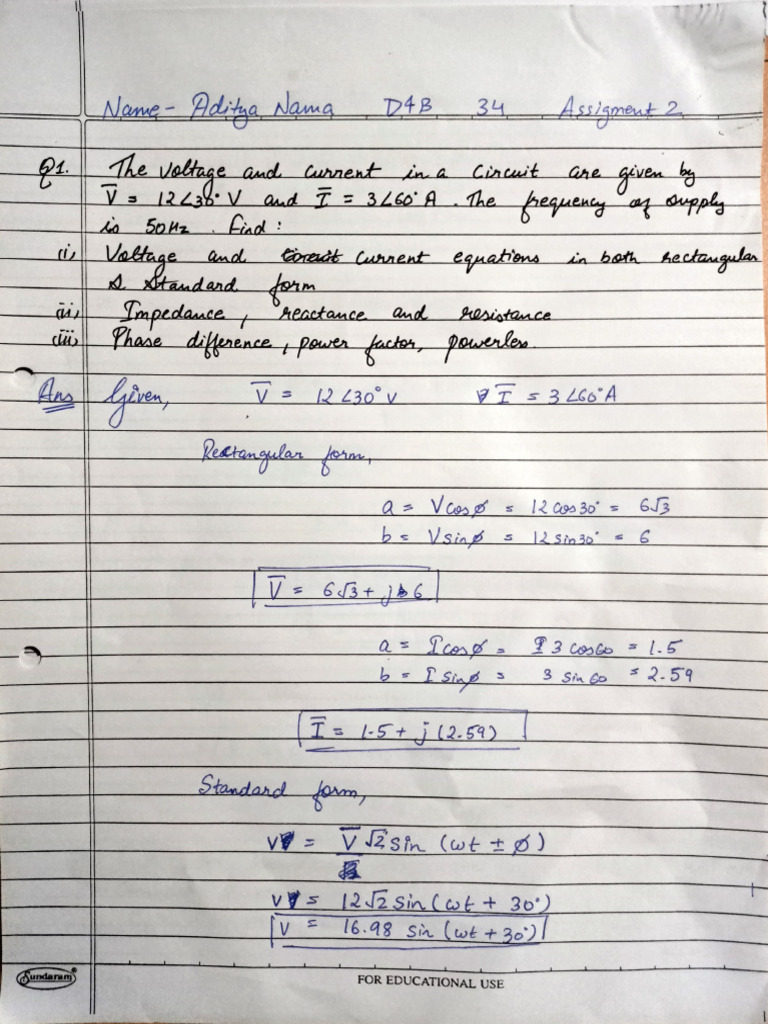 Name- Aditya Nama D4B 34 Assigment 2
Q1. The voltage and current in a circuit are given by
V̅ = 12∠30° V and I̅ = 3∠60° A. The frequency of supply
is 50Hz. Find:
(i) Voltage and current equations in both rectangular
& standard form
(ii) Impedance, reactance and resistance
(iii) Phase difference, power factor, powerless.
Ans Given, V̅ = 12∠30° V I̅ = 3∠60° A
Rectangular form,
a = Vcosø = 12cos30° = 6√3
b = Vsinø = 12sin30° = 6
V̅ = 6√3 + j6
a = Icosø = 3cos60 = 1.5
b = Isinø = 3 sin60 = 2.59
I̅ = 1.5 + j(2.59)
Standard form,
v = V̅√2 sin (ωt ± ø)
v = 12√2 sin(ωt + 30°)
V = 16.98 sin (ωt + 30°)
Sundaram®
FOR EDUCATIONAL USE